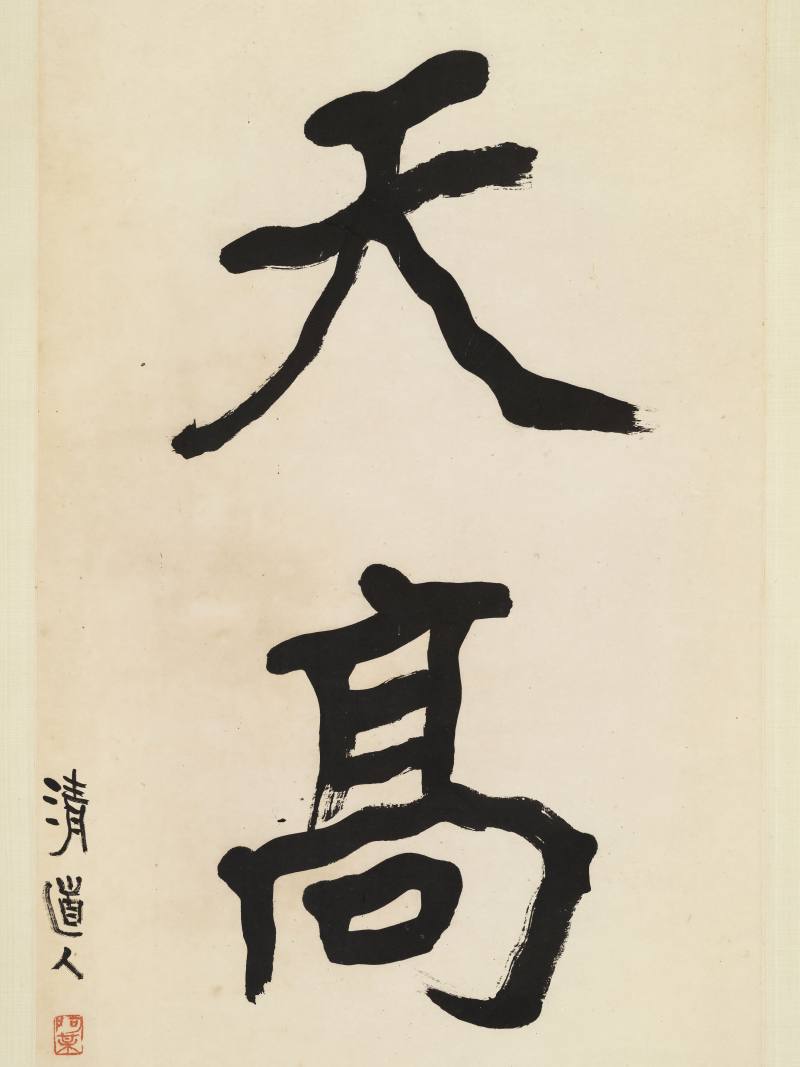 天
髙
清道人